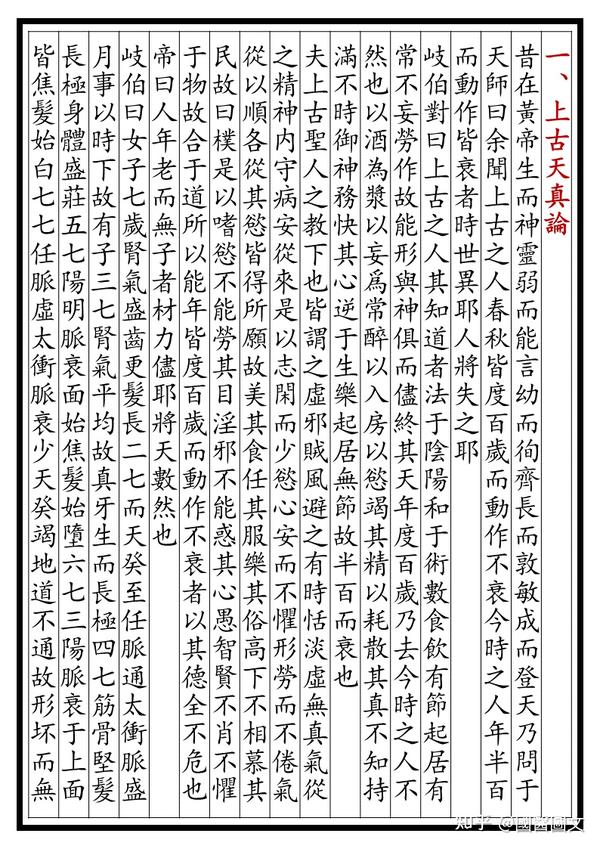 一、上古天真論
昔在黃帝生而神靈弱而能言幼而徇齊長而敦敏成而登天乃問于
天師曰余聞上古之人春秋皆度百歲而動作不衰今時之人年半百
而動作皆衰者時世異耶人將失之耶
岐伯對曰上古之人其知道者法于陰陽和于術數食飲有節起居有
常不妄勞作故能形與神俱而儘終其天年度百歲乃去今時之人不
然也以酒為漿以妄爲常醉以入房以慾竭其精以耗散其真不知持
滿不時御神務快其心逆于生樂起居無節故半百而衰也
夫上古聖人之教下也皆謂之虛邪賊風避之有時恬淡虛無真氣從
之精神內守病安從來是以志閑而少慾心安而不懼形勞而不倦氣
從以順各從其慾皆得所願故美其食任其服樂其俗高下不相慕其
民故曰樸是以嗜慾不能勞其目淫邪不能惑其心愚智賢不肖不懼
于物故合于道所以能年皆度百歲而動作不衰者以其德全不危也
帝曰人年老而無子者材力儘耶將天數然也
岐伯曰女子七歲腎氣盛齒更髮長二七而天癸至任脈通太衝脈盛
月事以時下故有子三七腎氣平均故真牙生而長極四七筋骨堅髮
長極身體盛莊五七陽明脈衰面始焦髮始墮六七三陽脈衰于上面
皆焦髮始白七七任脈虛太衝脈衰少天癸竭地道不通故形坏而無
知乎 @國醫國文